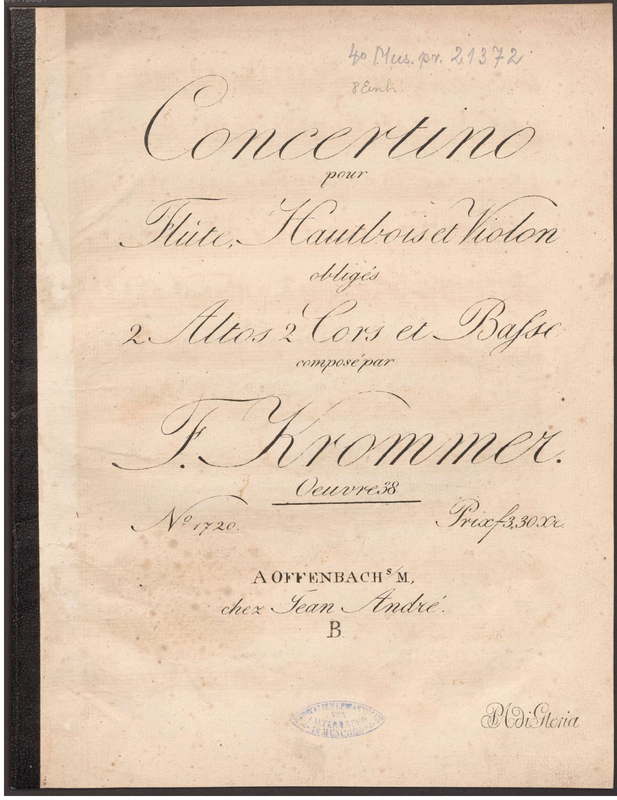 4o Mus. pr. 21372
Concertino
pour
Flûte, Hautbois et Violon
obligés
2 Altos 2 Cors et Basse
composé par
F. Krommer.
Oeuvre 38
No. 1720.
Prix f 3,30 Xr.
A OFFENBACH s/M,
chez Jean André.
B
IN MÜNCHEN